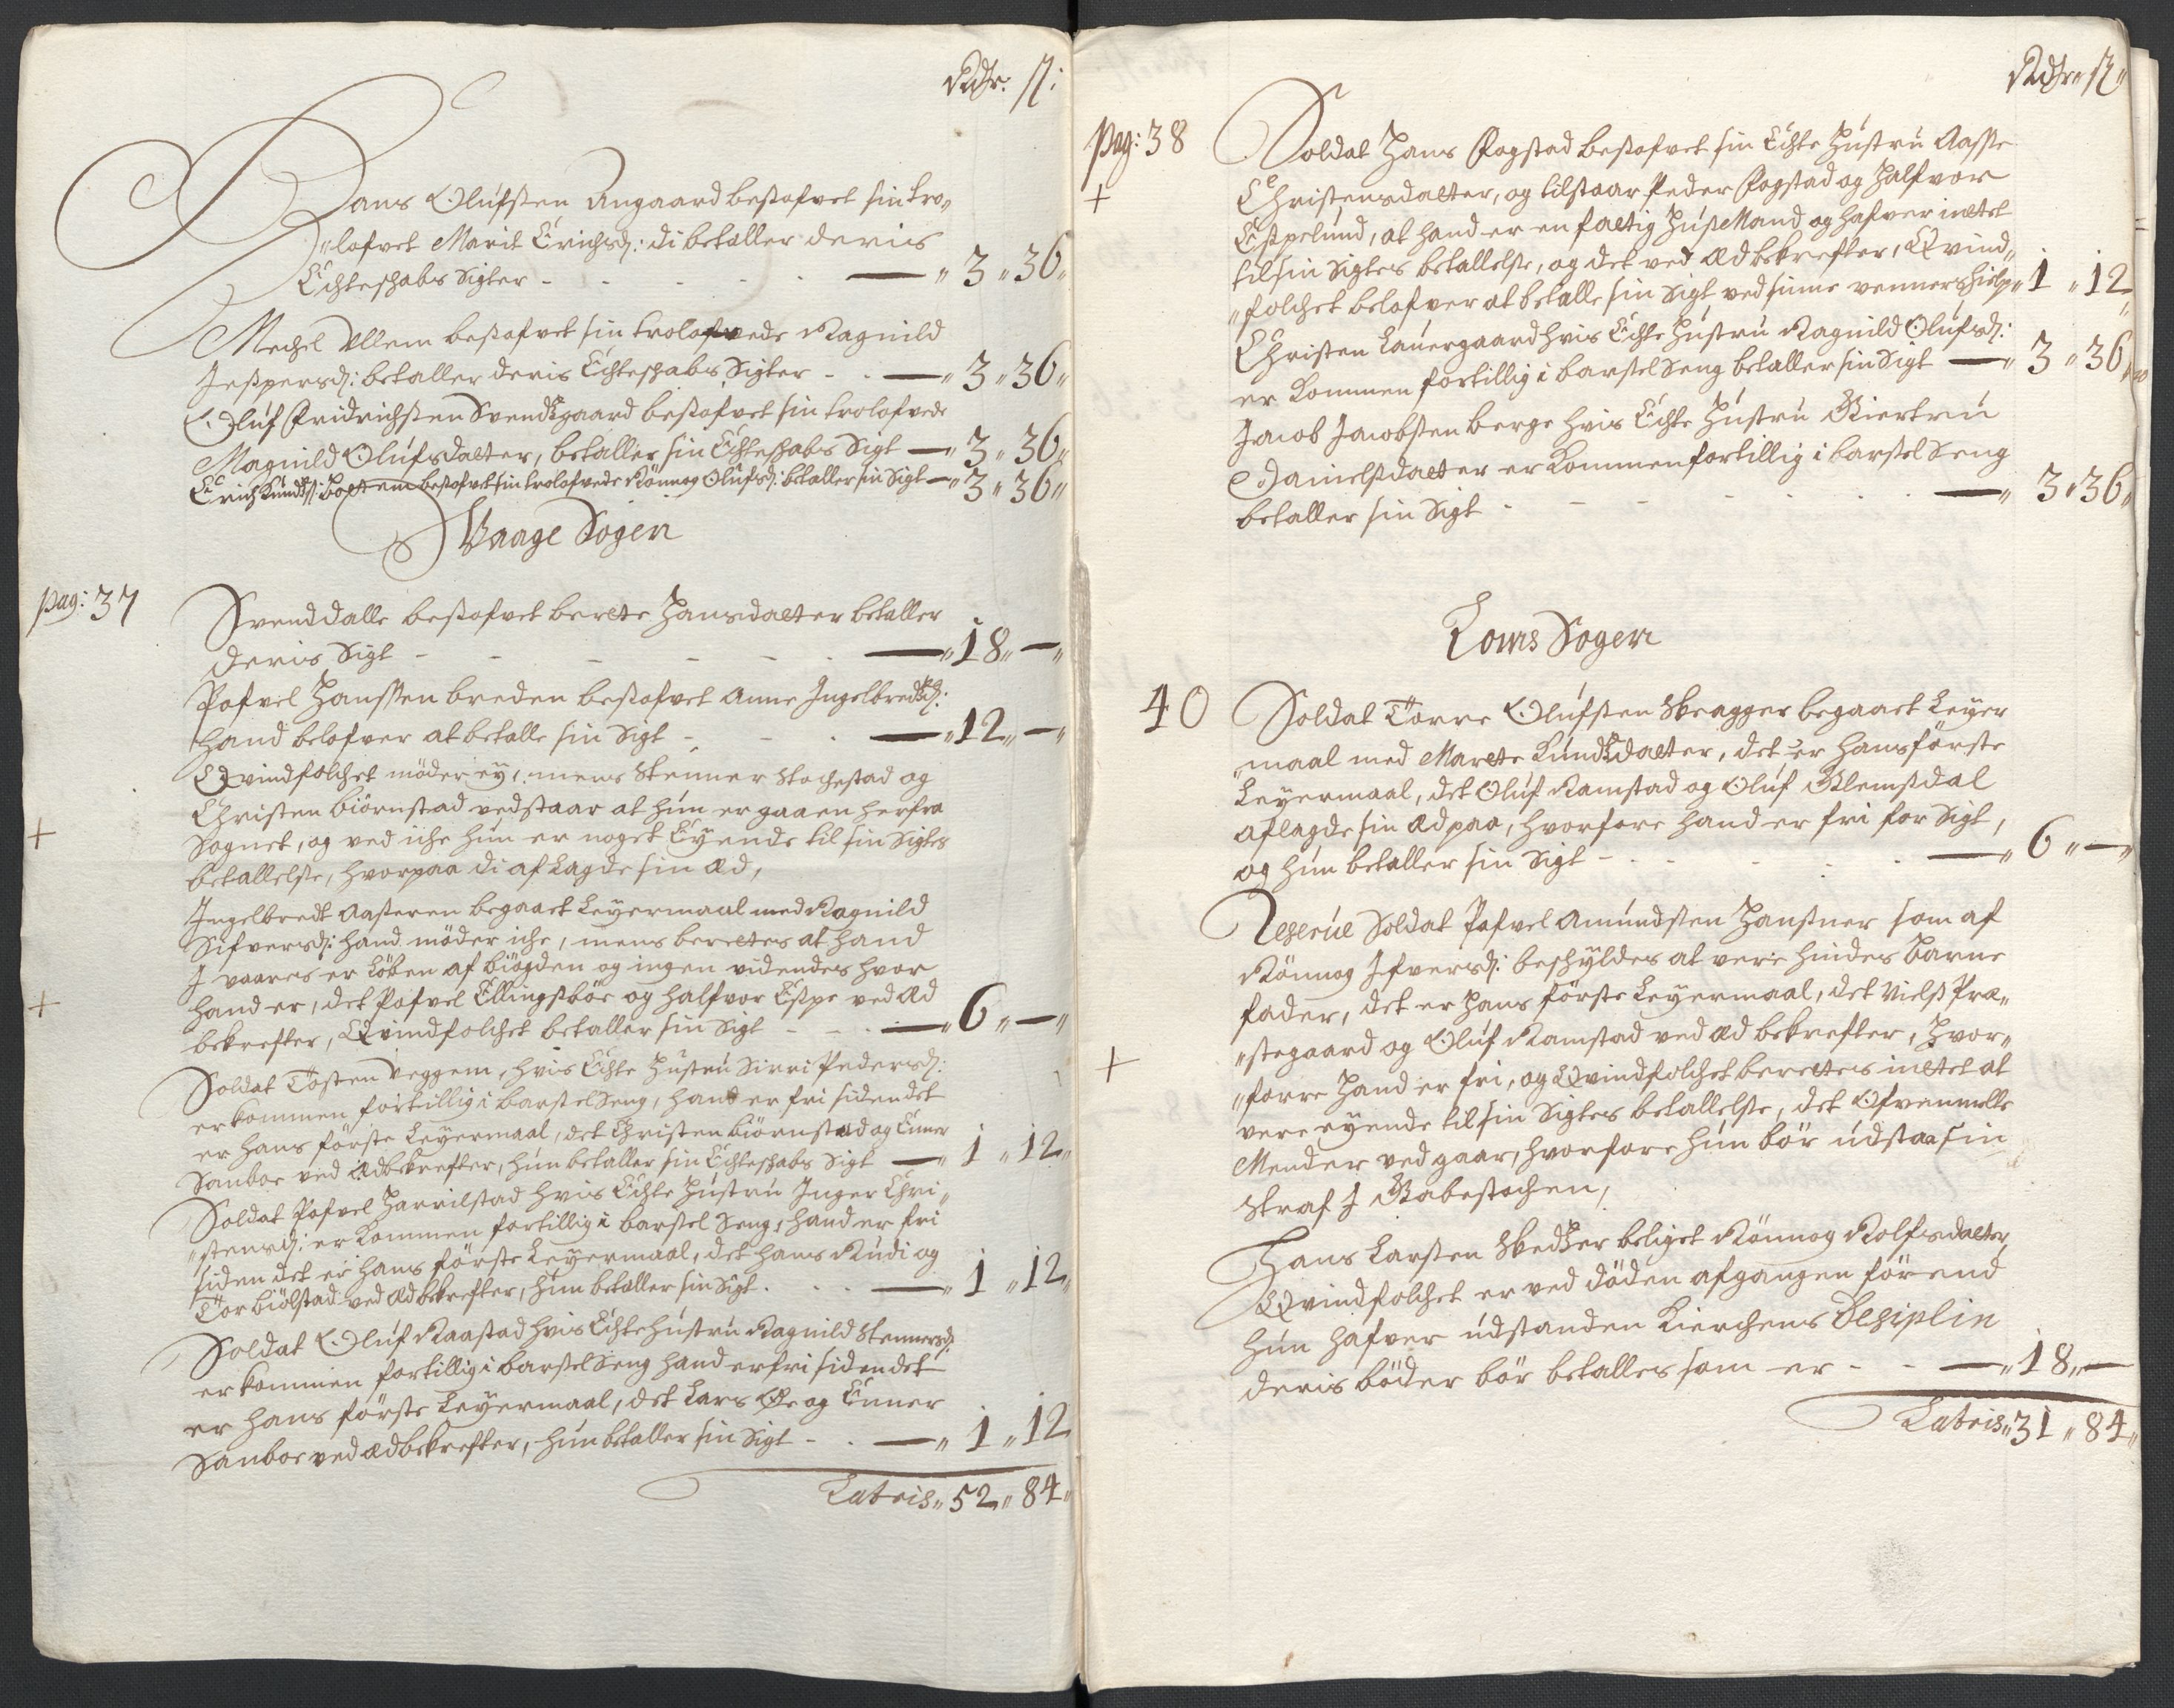 Rdr: ß:
Hans Olúfsen Angaard besofvet sin tro„
„lofvet Marit Erichsd: di betaller deris
Echteschabs Sigter - - - - — „ 3 „ 36„
Mechel Ullem besofvet sin trolofvede Ragnild
Jespersd: betaller deris Echteschabs Sigter - - — „ 3 „ 36„
Olúf Fridrichsen Svendsgaard besofvet sin trolofvede
Magnild Olúfsdatter, betaller sin Echteschabs Sigt — „ 3 „ 36„
Erich Kundss: besofvet sin trolofvede Rönnog Olúfsd: betaller sin Sigt — „ 3 „ 36„
Vaage Sogen
pag: 37
Svend dalle besofvet berete Hansdatter betaller
deris Sigt - - - - - - — „ 18 „ — „
Pofvel Hanssen breden besofvet Anne Ingelbredsd:
hand belofver at betalle sin Sigt - - - — „ 12 „ — „
Qvindfolchet möder ey, mens Stenner Stochestad og
Christen biörnstad vedstaar at hún er gaaen herfra
+
Sognet, og ved iche hún er noget Eyende til sin Sigtes
betallelse, hvorpaa di aflagde sin Æd,
Ingelbredt Aasteren begaaet Leyermaal med Ragnild
Sifversd: hand möder iche, mens berettes at hand
I vaares er Löben af biögden og ingen videndes hvor
+
hand er, det Pofvel Ellingsböe og halfvor Espe ved Æd
bekrefter, Qvindfolchet betaller sin Sigt - - - — „ 6 „ — „
Soldat Tosten veggem, hvis Echte Hustrú Sirri Pedersd:
er kommen fortillig i barselseng, hand er fri siden det
er hans förste Leyermaal, det Christen biörnstad og Einer
Sanboe ved Æd bekrefter, hún betaller sin Echteschabs Sigt — „ 1 „ 12„
Soldat Pofvel Harrilstad hvis Echte Hústrú Inger Chri„
„stensd: er kommen fortillig i barsel Seng, hand er fri
siden det er hans förste Leyermaal, det hans Rúdi og
Tor biölstad ved Æd bekrefter, hún betaller sin Sigt . - - — „ 1 „ 12„
Soldat Olúf Raastad hvis Echte hústrú Ragnild Stennersd:
er kommen fortillig i barsel Seng hand er fri siden det
er hans förste Leyermaal, det Lars Øe og Einer
Sanboe ved Æd bekrefter, hún betaller sin Sigt - - — „ 1 „ 12
Latris „ 52 „ 84„
Rdr„ ß„
pag: 38
Soldat Hans Fogstad besofvet sin Echte Hústrú Aasse
+
Christensdatter, og tilstaar Peder Fogstad og Halfvor
Espelúnd, at hand er en fattig Húss Mand og hafver inttet
til sin Sigtes betallelse, og det ved Æd bekrefter, Qvind„
„folchet belofver at betalle sin Sigt ved sinne venners hielp „ 1 „ 12„
Christen Lauergaard hvis Echte Hústrú Ragnild Olúfsd:
er Kommen fortillig i barsel Seng betaller sin Sigt — „ 3 „ 36„
Jacob Jacobsen berge hvis Echte Hústrú Giertrú
Danielsdatter er Kommen fortillig i barsel Seng
betaller sin Sigt - - - - - - - — „ 3 „ 36„
Loms Sogen
40
Soldat Torre Olúfsen Skeagger begaaet Leyer
„maal med Marete Kúndsdatter, det er hans förste
Leyermaal, det Olúf Ramstad og Olúf Glemsdal
aflagde sin Æd paa, hvorfore hand er fri for Sigt,
og hún betaller sin Sigt - - - - - - — „ 6 „ — „
Reserúe Soldat Pofvel Amúndsen som af
Rönnog Ifversd: beschyldes at vere hindes barne
fader, det er hans förste Leyermaal, det Niels Præ„
„stegaard og Olúf Ramstad ved Æd bekrefter, hvor„
+
„forre Hand er fri, og Qvindfolchet berettes inttet at
vere eyende til sin Sigtes betallelse, det Ofvenmelte
Mender ved gaar, hvorfore hún bör údstaa sin
Straf I Gabestochen,
Hans Larsen Skedser beliget Rönnog Rolfsdatter,
Qvindfolchet er ved döden afgangen förend
hún hafver údstanden Kierchens Desiplin
deris böder bör betalles som er - - — „ 18 „ —
Latris „ 31 „ 84„